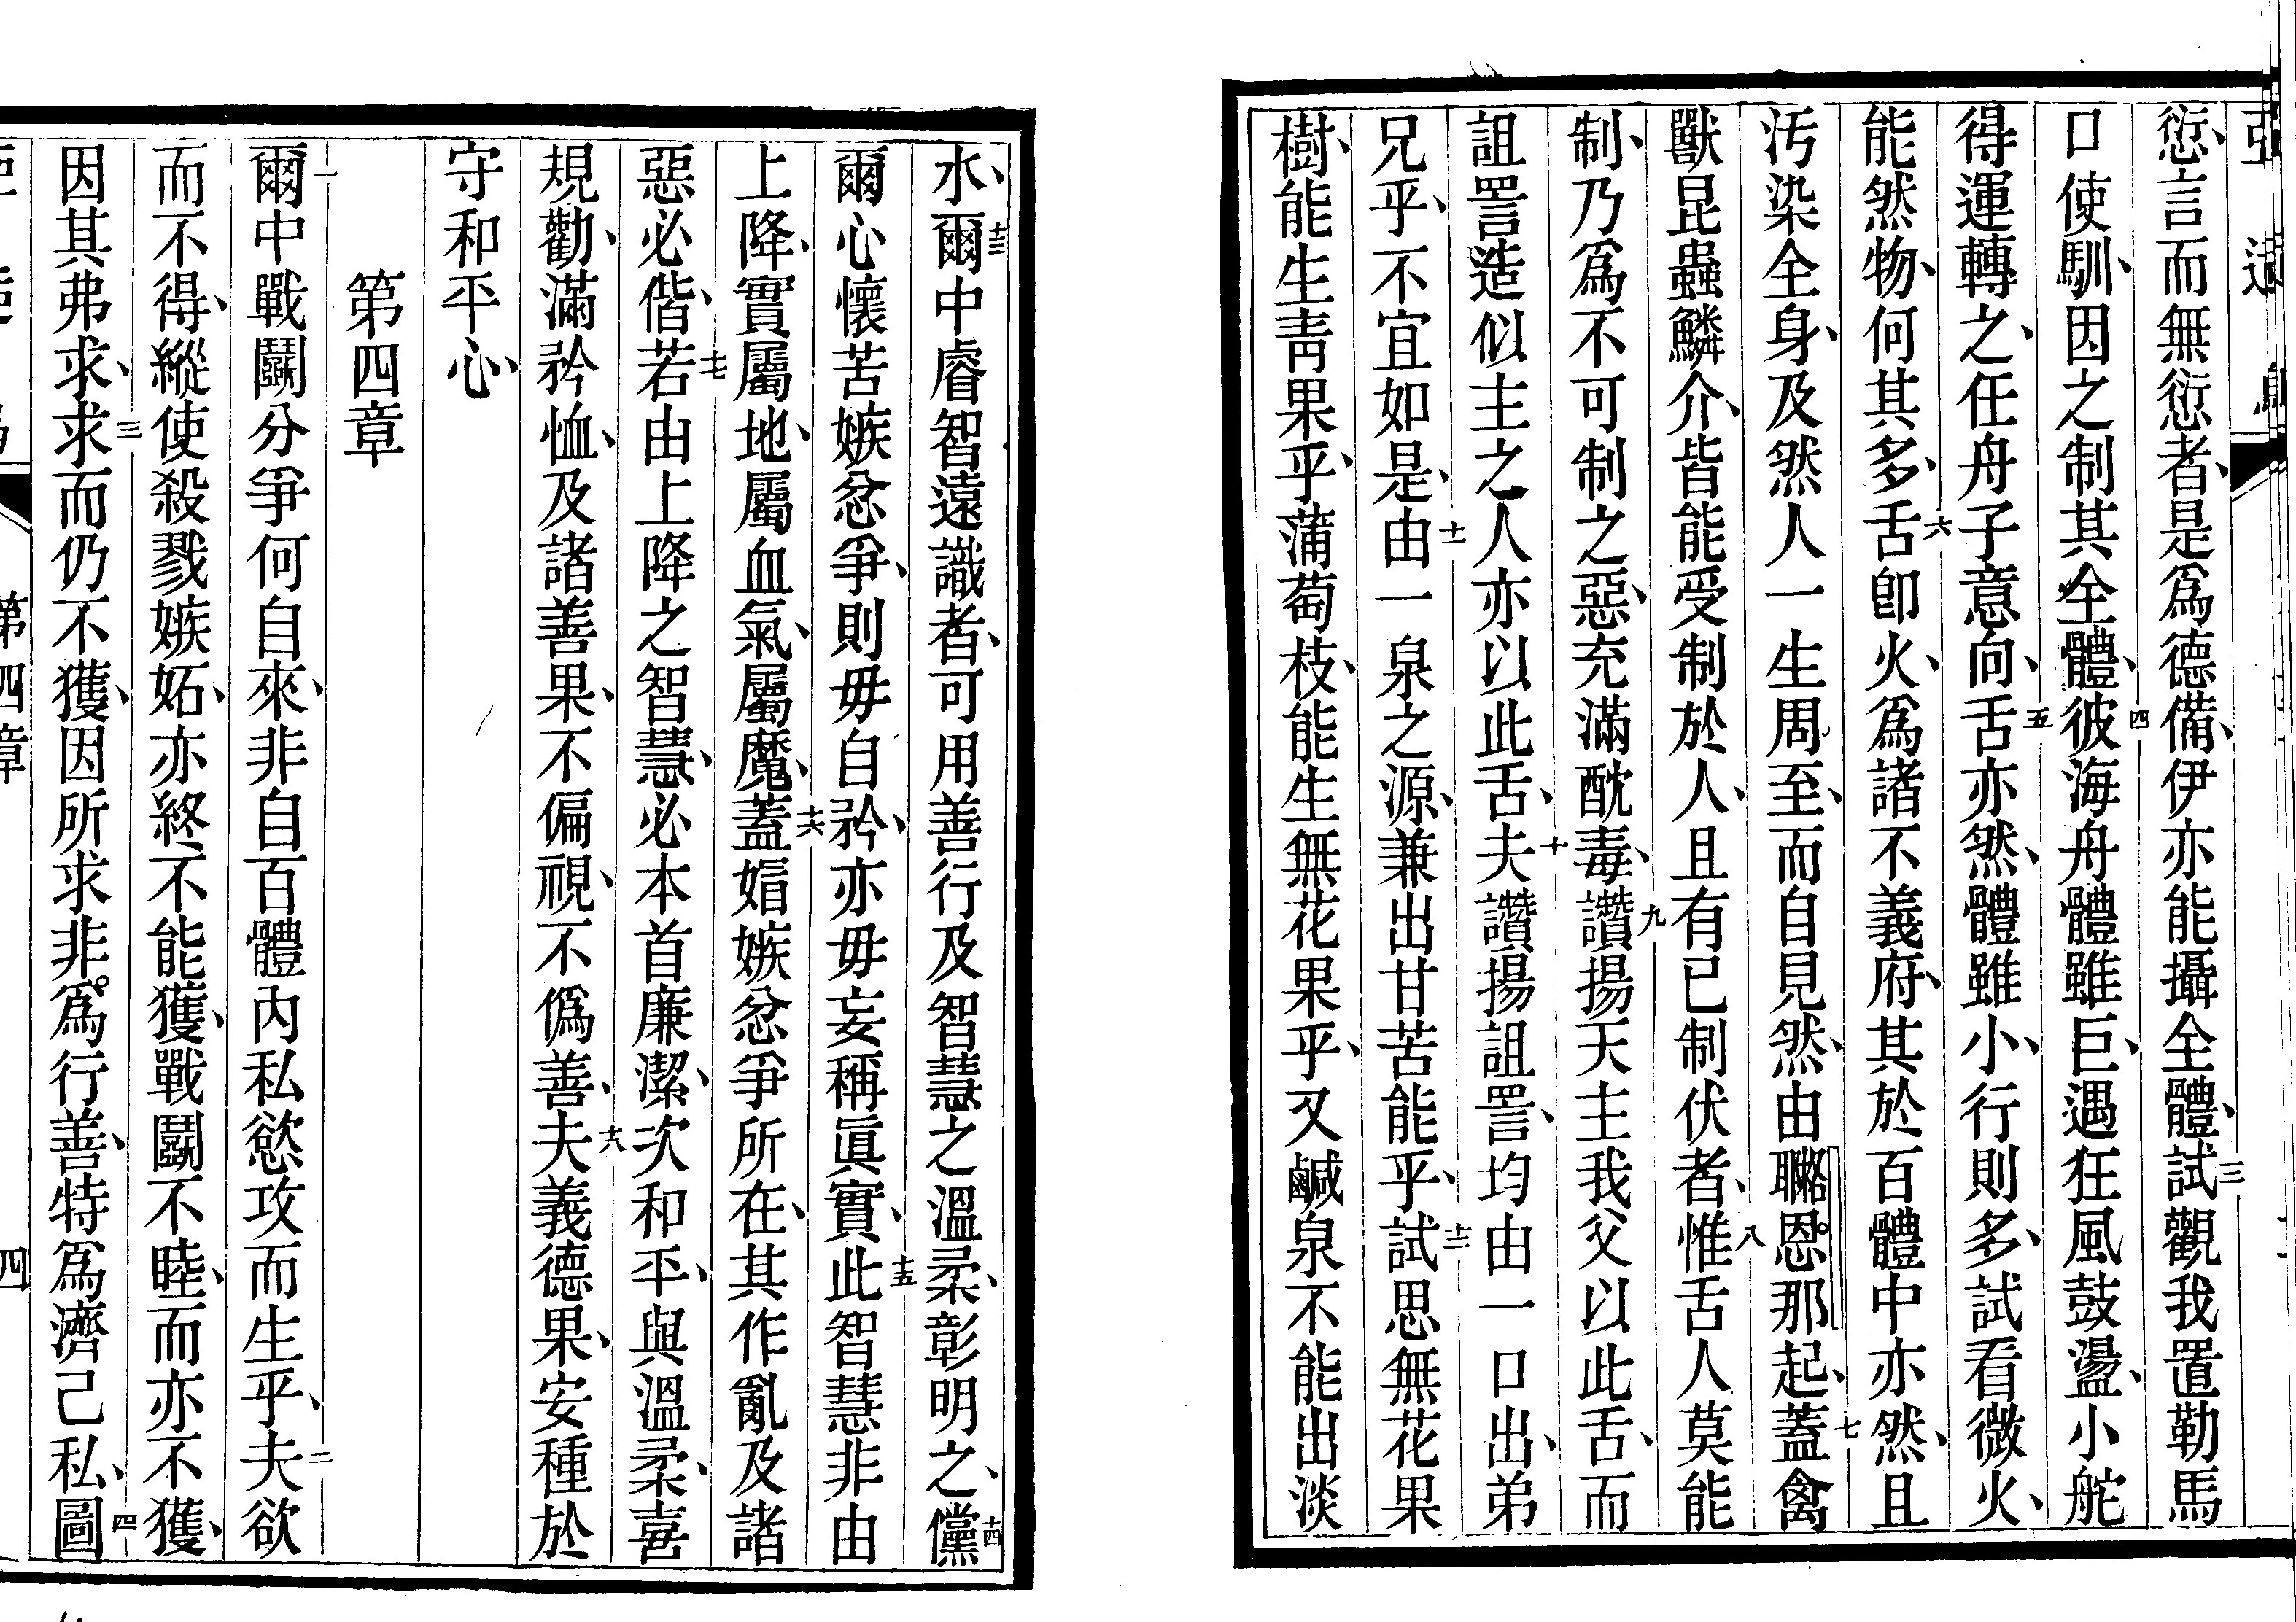 愆、言而無愆者、是爲德備、伊亦能攝全體、三試觀我置勒馬
口使馴、因之制其全體、四彼海舟體雖巨、遇狂風鼓盪、小舵
得運轉之、任舟子意向、五舌亦然、體雖小、行則多、試看微火、
能然物、何其多、六舌卽火、爲諸不義府、其於百體中亦然、且
汚染全身、及然人一生周至、而自見然、由䎬恩那起、七蓋禽
獸昆蟲鱗介、皆能受制於人、且有已制伏者、八惟舌人莫能
制、乃爲不可制之惡、充滿酖毒、九讚揚天主我父以此舌、而
詛詈造似主之人亦以此舌、十夫讚揚詛詈、均由一口出、弟
兄乎、不宜如是、十一由一泉之源、兼出甘苦能乎、十二試思無花果
樹、能生靑果乎、蒲萄枝、能生無花果乎、又鹹泉不能出淡
水、十三爾中睿智遠識者、可用善行及智慧之溫柔、彰明之、十四儻
爾心懷苦嫉忿爭、則毋自矜、亦毋妄稱眞實、十五此智慧非由
上降、實屬地、屬血氣、屬魔、十六蓋媢嫉忿爭所在、其作亂及諸
惡必偕、十七若由上降之智慧、必本首廉潔、次和平、與溫柔、喜
規勸、滿矜恤、及諸善果、不偏視、不僞善、十八夫義德果、安種於
守和平心、
第四章
一爾中戰鬬分爭何自來、非自百體內私慾攻而生乎、二夫欲
而不得、縱使殺戮嫉妬、亦終不能獲、戰鬬不睦、而亦不獲、
因其弗求、三求而仍不獲、因所求非爲行善、特爲濟己私、四圖
第四章
四